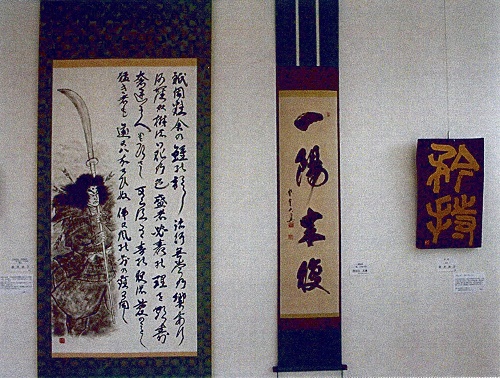 祇園精舎の鐘の声諸行無常の響あり
沙羅双樹の花の色盛者必衰の理を顕す
奢れる人も久しからず只春の夜の夢の如し
猛き者も遂にはほろびぬ偏に風の前の塵に同じ
一陽来復
矜持